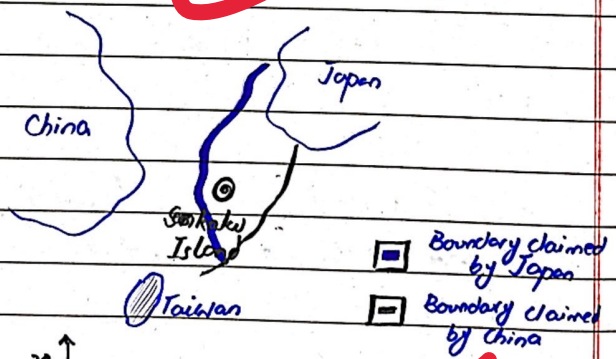 Japan
China
Senkaku
Island
Boundary claimed
by Japan
Taiwan
Boundary claimed
by China